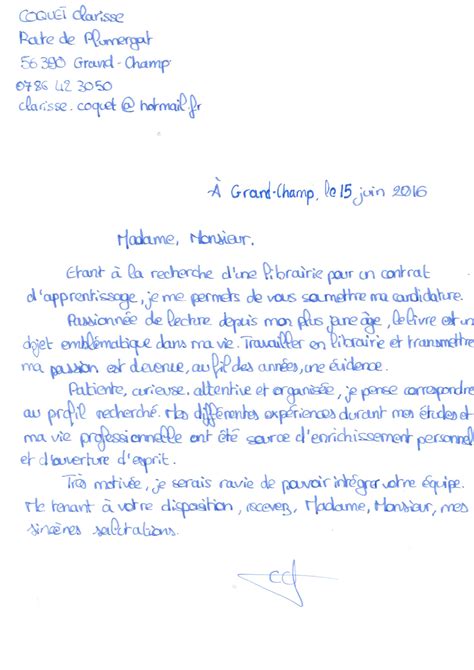 COQUET Clarisse
Route de Plumergat
56390 Grand-Champ
0786 42 3050
clarisse.coquet@hotmail.fr
À Grand-Champ, le 15 juin 2016
Madame, Monsieur,
Etant à la recherche d'une librairie pour un contrat
d'apprentissage, je me permets de vous soumettre ma candidature.
Passionnée de lecture depuis mon plus jeune âge, le livre est un
objet emblématique dans ma vie. Travailler en librairie et transmettre
ma passion est devenue, au fil des années, une évidence.
Patiente, curieuse, attentive et organisée, je pense correspondre
au profil recherché. Mes différentes expériences durant mes études et
ma vie professionnelle ont été source d'enrichissement personnel
et d'ouverture d'esprit.
Très motivée, je serais ravie de pouvoir intégrer votre équipe.
Me tenant à votre disposition, recevez, Madame, Monsieur, mes
sincères salutations.